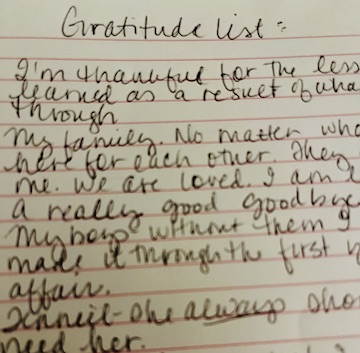 Gratitude list:
I'm thankful for the less
learned as a result of wha
through
My family. No matter wha
here for each other. They
me. We are loved. I am l
a really good goodbye
My boys without them I
made it through the first
affair.
she always sho
need her.